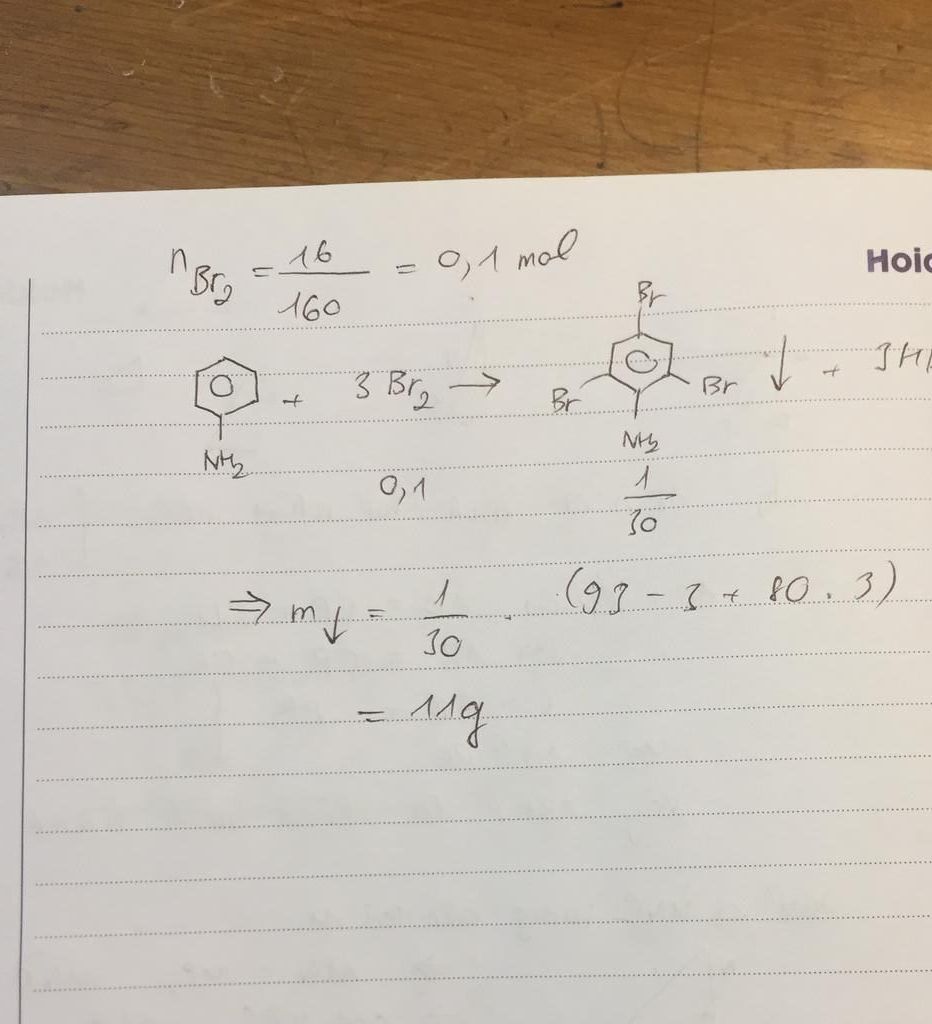 Hoic
n Br₂ = 16/160 = 0,1 mol
Br
+ 3 Br₂ → Br Br ↓ + 3H
NH₂ NH₂
0,1 1/30
⇒ m↓ = 1/30 . (93 - 3 + 80 . 3)
= 11g